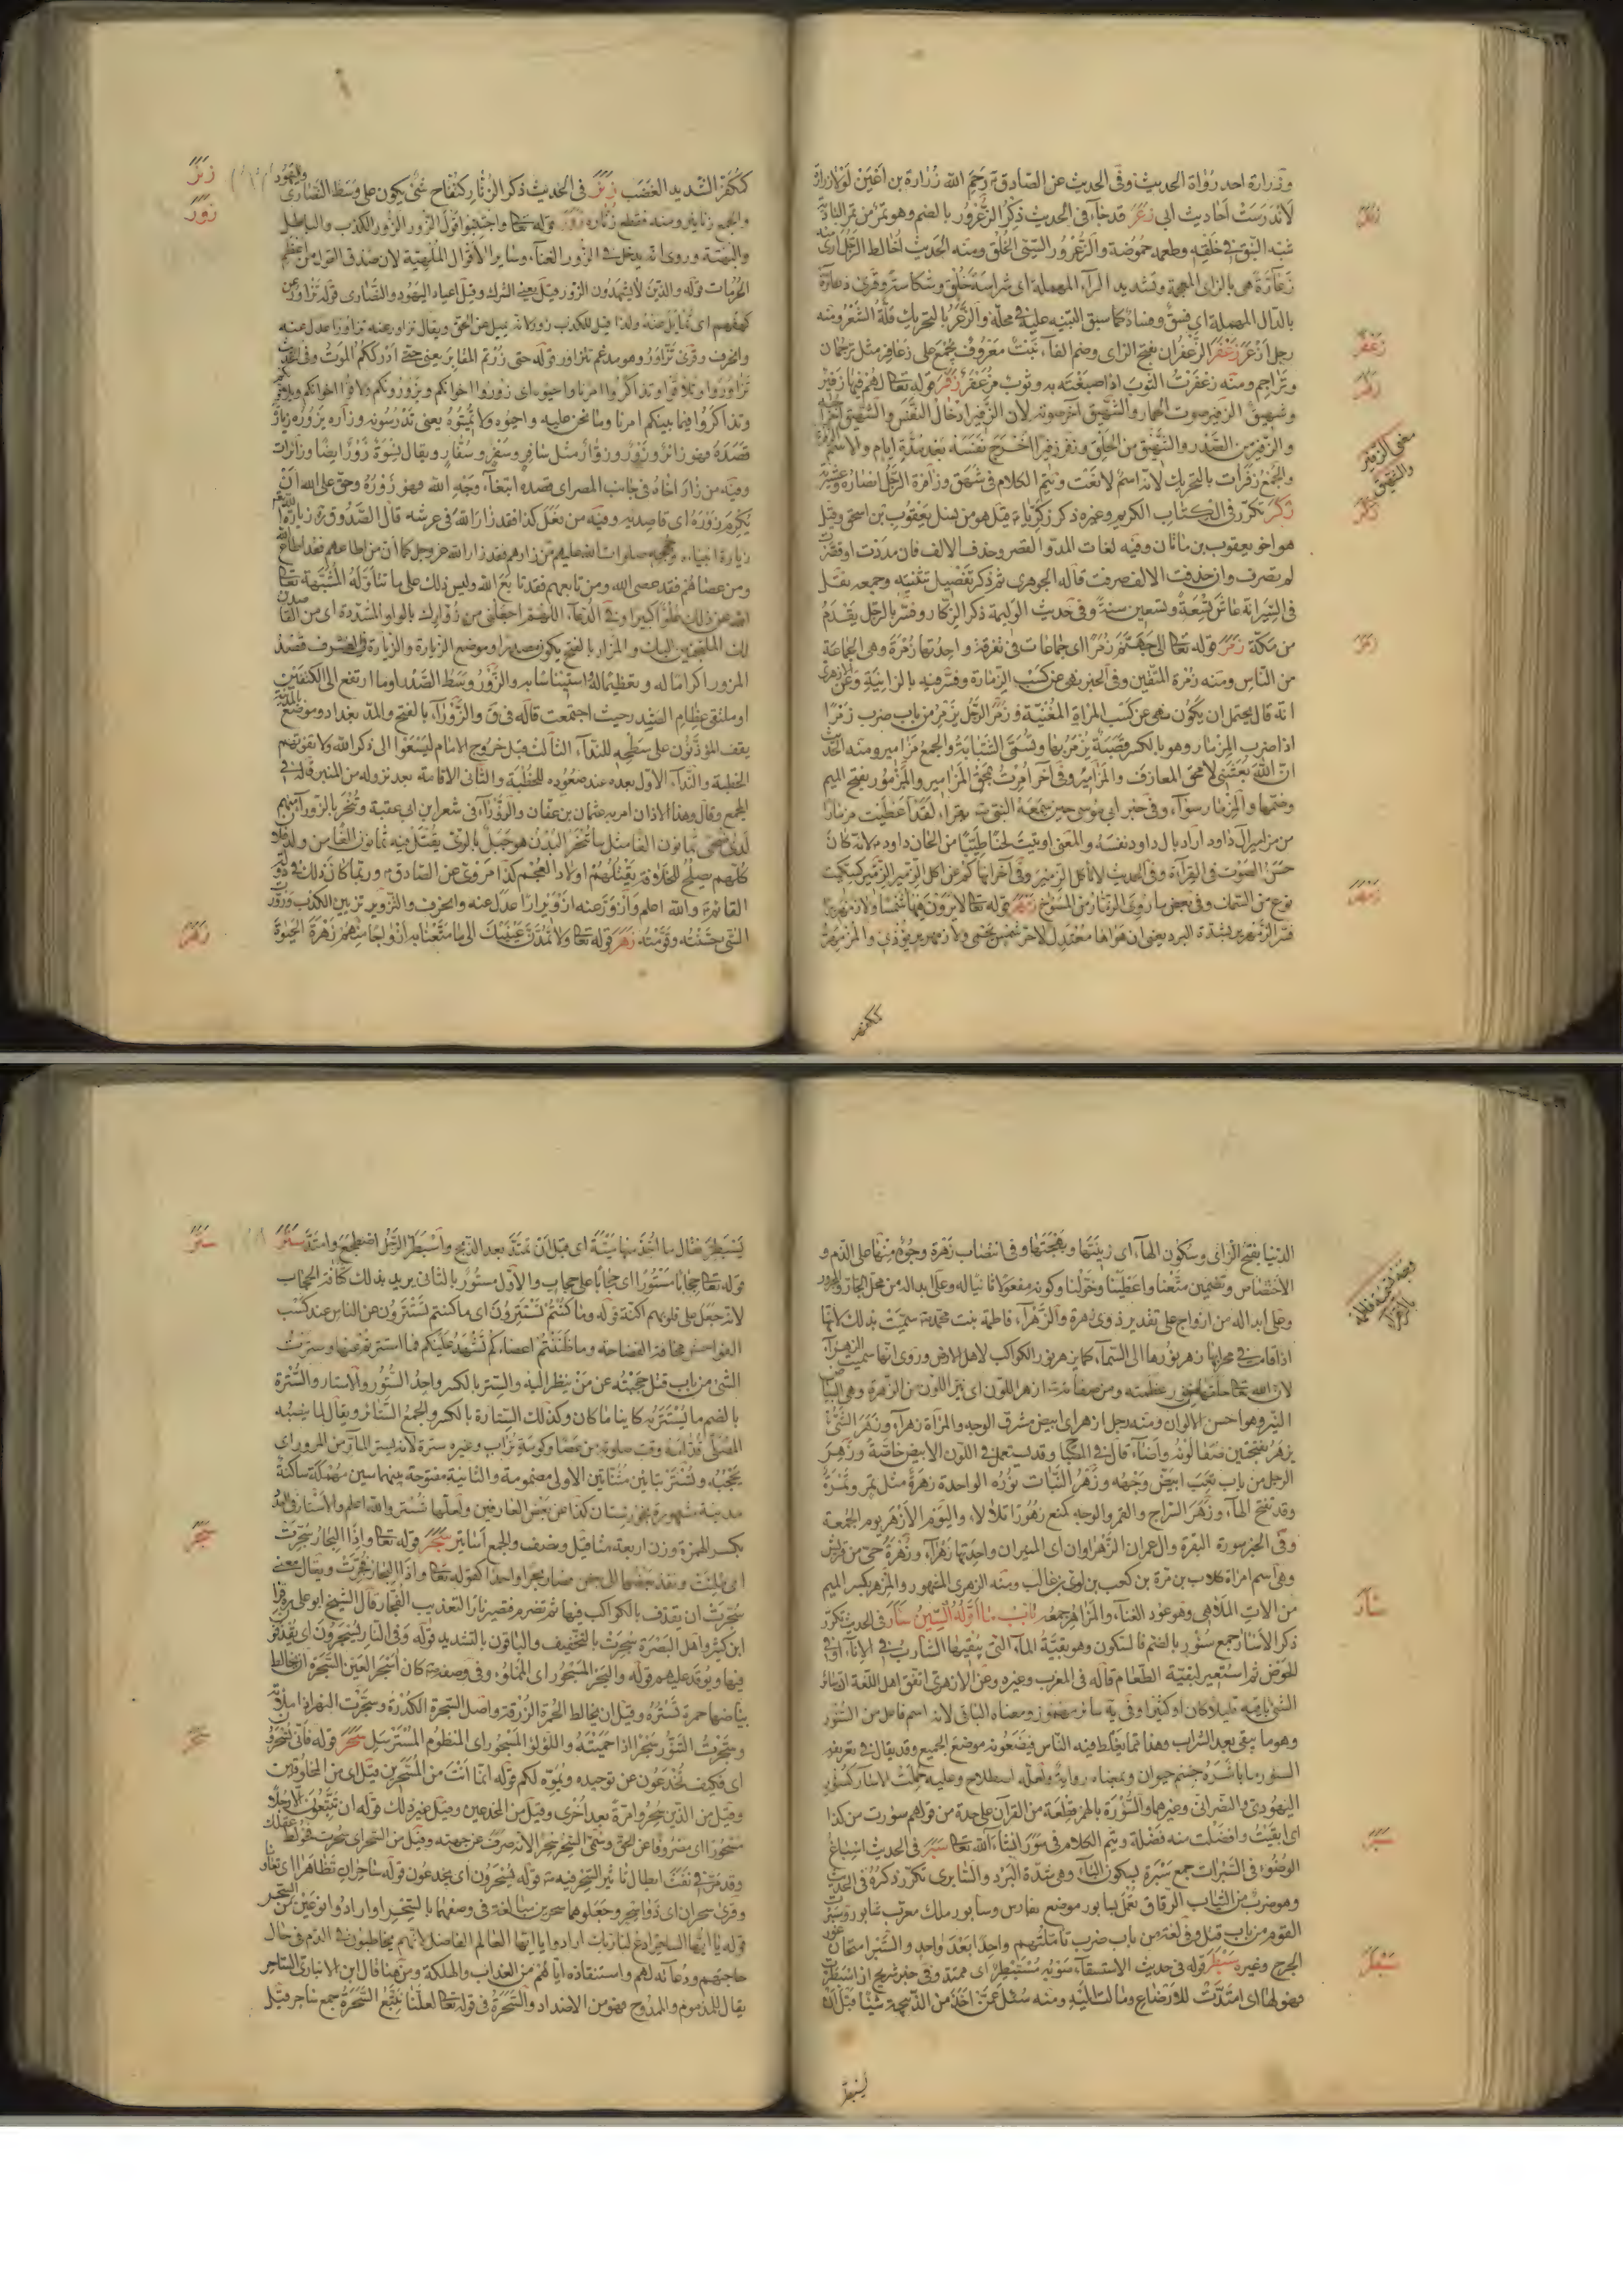 وزرارة احد رواة الحديث وفى الحديث عن الصادق ع رحم الله زرارة بن اعين لولا زرارة
لاندرست احاديث ابى زعر قد جاء فى الحديث ذكر الزعرور بالضم وهو ثمر من ثمر البادية
شبه النبق فى خلقه وطعمه حموضة والزعرور السيئ الخلق ومنه الحديث اخالط الرجل ارى منه
زعارة هى بالزاى المعجمة وتشديد الراء المهملة اى شراسة خلق وشكاسة وقرئ ذعارة
بالدال المهملة اى فسق وفساد كما سبق التنبيه عليه فى محله والزعر بالتحريك قلة الشعر ومنه
رجل ازعر زعفر الزعفران بفتح الزاى وضم الفاء نبت معروف يجمع على زعافر مثل ترجمان
وتراجم ومنه زعفرت الثوب اذا صبغته به وثوب مزعفر زفر قوله تعا لهم فيها زفير
وشهيق الزفير صوت الحمار والشهيق آخر صوته لان الزفير ادخال النفس والشهيق اخراجه
والزفير من الصدر والشهيق من الحلق وزفر زفيرا اخرج نفسه بعد مدة ايام والاسم الزفرة
والجمع زفرات بالتحريك لانه اسم لا نعت ويتم الكلام فى شهق وزافرة الرجل انصاره وعشيرته
زكر تكرر فى الكتاب الكريم وغيره ذكر زكريا ع قيل هو من نسل يعقوب بن اسحق وقيل
هو اخو يعقوب بن ماثان وفيه لغات المد والقصر وحذف الالف فان مددت او قصرت
لم تصرف وان حذفت الالف صرفت قاله الجوهرى ثم ذكر تفصيل تثنيته وجمعه نقل
فى السير انه عاش تسعة وتسعين سنة وفى حديث الوليمة ذكر الزكار وفسر بالرجل يقدم
من مكة زمر قوله تعا الى جهنم زمرا اى جماعات فى تفرقة واحدتها زمرة وهى الجماعة
من الناس ومنه زمرة المتقين وفى الخبر نهى عن كسب الزمارة وفسر فيه بالزانية وعن الازهرى
انه قال يحتمل ان يكون نهى عن كسب المراة المغنية وزمر الرجل يزمر من باب ضرب زمرا
اذا ضرب المزمار وهو بالكسر قصبة يزمر بها وتسمى الشبابة والجمع مزامير ومنه الحديث
ان الله بعثنى لامحق المعازف والمزامير وفى آخر امرت بمحق المزامير والمزمور بفتح الميم
وضمها والمزمار سواء وفى خبر ابى موسى حين سمعه النبى ص يقرا لقد اعطيت مزمارا
من مزامير آل داود اراد بآل داود نفسه والمعنى اوتيت لحنا طيبا من الحان داود ع لانه كان
حسن الصوت فى القراءة وفى الحديث لا تاكل الزمير وفى آخر انهاكم عن اكل الزمير الزمير كسكيت
نوع من السمك وفى بعض ما روى الزمار من المسوخ زمهر قوله تعا لا يرون فيها شمسا ولا زمهريرا
فسر الزمهرير بشدة البرد يعنى ان هواها معتدل لا حر شمس يحمى ولا زمهرير يؤذى والمزمهر
ككفهر
زعر
زعفر
زفر
معنى الزفير
والشهيق
زكر
زمر
زمهر
ككفهر الشديد الغضب زنر فى الحديث ذكر الزنار كتفاح شئ يكون على وسط النصارى واليهود
والجمع زنانير ومنه فقطع زناره زور قوله تعا واجتنبوا قول الزور الزور الكذب والباطل
والبهتة وروى انه يدخل فى الزور الغناء وسائر الاقوال الملهية لان صدق القول من اعظم
الحرمات قوله والذين لا يشهدون الزور قيل يعنى الشرك وقيل اعياد اليهود والنصارى قوله تزاور عن
كهفهم اى تمايل عنه ولذا قيل للكذب زور لانه يميل عن الحق ويقال تزاور عنه تزاورا عدل عنه
وانحرف وقرئ تزاور وهو مدغم تتزاور قوله حتى زرتم المقابر يعنى حتى ادرككم الموت وفى الحديث
تزاوروا وتلاقوا وتذاكروا امرنا واحيوه اى زوروا اخوانكم ويزورونكم ولاقوا اخوانكم ويلاقونكم
وتذاكروا فيما بينكم امرنا وما نحن عليه واحيوه ولا تميتوه يعنى تدرسونه وزاره يزوره زيارة
قصده فهو زائر وزور وزوار مثل سافر وسفر وسفار ويقال نسوة زور ايضا وزائرات
وفيه من زار اخاه فى جانب المصر اى قصده ابتغاء وجه الله فهو زوره وحق على الله ان
يكرم زوره اى قاصديه وفيه من فعل كذا فقد زار الله فى عرشه قال الصدوق ره زيارة الله
زيارة انبيائه وحججه صلوات الله عليهم من زارهم فقد زار الله عز وجل كما ان من اطاعهم فقد اطاع الله
ومن عصاهم فقد عصى الله ومن تابعهم فقد تابع الله وليس ذلك على ما تتأوله المشبهة تعا
الله عن ذلك علوا كبيرا وفى الدعاء اللهم اجعلنى من زوارك بالواو المشددة اى من القاصدين
لك الملتجئين اليك والمزار بالفتح يكون مصدرا وموضع الزيارة والزيارة فى العرف قصد
المزور اكراما له وتعظيما له واستيناسا به والزور وسط الصدر او ما ارتفع الى الكتفين
او ملتقى عظام الصدر حيث اجتمعت قاله فى ق والزوراء بالفتح والمد بغداد وموضع بالمدينة
يقف المؤذنون على سطحه للنداء الثالث قبل خروج الامام ليسعوا الى ذكر الله ولا تفوتهم
الخطبة والنداء الاول بعده عند صعوده للخطبة والثانى الاقامة بعد نزوله من المنبر قاله فى
المجمع وقال وهذا الاذان امر به عثمان بن عفان والزوراء فى شعر ابن ابى عقبة وتنحر بالزوراء منهم
لدى الضحى ثمانون الفا مثل ما تنحر البدن هو جبل بالرى يقتل فيه ثمانون الفا من ولد فلان
كلهم يصلح للخلافة يقتلهم اولاد العجم كذا مروى عن الصادق ع وربما كان ذلك فى دولة
القائم ع والله اعلم وازور عنه ازويرارا عدل عنه وانحرف والتزوير تزيين الكذب وزورت
الشئ حسنته وقومته زهر قوله تعا ولا تمدن عينيك الى ما متعنا به ازواجا منهم زهرة الحيوة
زنر
زور
زهر
الدنيا بفتح الزاى وسكون الهاء اى زينتها وبهجتها وفى انتصاب زهرة وجوه منها على الذم و
الاختصاص وتضمين متعنا واعطينا وخولنا وكونه مفعولا ثانيا له وعلى ابداله من محل الجار والمجرور
وعلى ابداله من ازواج على تقدير ذوى زهرة والزهراء فاطمة بنت محمد ص سميت بذلك لانها
اذا قامت فى محرابها زهر نورها الى السماء كما يزهر نور الكواكب لاهل الارض وروى انها سميت الزهراء
لان الله تعا خلقها من نور عظمته ومن صفاته ص ازهر اللون اى نير اللون من الزهرة وهى البياض
النير وهو احسن الالوان ومنه رجل ازهر اى ابيض مشرق الوجه والمراة زهراء وزهر الشئ
يزهر بفتحتين صفا لونه واضاء قال فى المصباح وقد يستعمل فى اللون الابيض خاصة وزهر
الرجل من باب تعب ابيض وجهه وزهر النبات نوره الواحدة زهرة مثل تمر وتمرة
وقد تفتح الهاء وزهر السراج والقمر والوجه كمنع زهورا تلالا واليوم الازهر يوم الجمعة
وفى الخبر سورة البقرة وال عمران الزهراوان اى المنيران واحدتها زهراء وزهرة حى من قريش
وهى اسم امراة كلاب بن مرة بن كعب بن لوى بن غالب ومنه الزهرى المشهور والمزهر بكسر الميم
من الات الملاهى وهو عود الغناء والمزاهر جمعه باب ما اوله السين سأر فى الحديث تكرر
ذكر الأسآر جمع سؤر بالضم فالسكون وهو بقية الماء التى يبقيها الشارب فى الاناء او فى
الحوض ثم استعير لبقية الطعام قاله فى المغرب وغيره وعن الازهرى اتفق اهل اللغة ان سائر
الشئ باقيه قليلا كان او كثيرا وفى سائر مهموز ومعناه الباقى لانه اسم فاعل من السؤر
وهو ما يبقى بعد الشراب وهذا مما يغلط فيه الناس فيضعونه موضع الجميع وقد يقال فى تعريفه
السؤر ما باشره جسم حيوان وبمعناه رواية ولعله اصطلاح وعليه حملت الاسآر كسؤر
اليهودى والنصرانى وغيرهما والسؤرة بالهمز قطعة من القرآن على حدة من قولهم سؤرت من كذا
اى ابقيت وافضلت منه فضلة ويتم الكلام فى سور انشاء الله تعا سبر فى الحديث اسباغ
الوضوء فى السبرات جمع سبرة بسكون الباء وهى شدة البرد والسابرى تكرر ذكره فى الحديث
وهو ضرب من الثياب الرقاق تعمل بسابور موضع بفارس وسابور ملك معرب شابور وسبرت
القوم من باب قتل وفى لغة من باب ضرب تاملتهم واحدا بعد واحد والسبر امتحان غور
الجرح وغيره سبطر قوله فى حديث الاستسقاء مستبطر اى ممتد وفى خبر شريح ان اسبطرت
فهو لها اى امتدت للارضاع ومالت اليه ومنه سئل عمن اخذ من الذبيحة شيئا قبل ان
يسبطر
سأر
سبر
سبطر
يسبطر فقال ما اخذ منها ميتة اى قبل ان تمتد بعد الذبح واسبطر الرجل اضطجع وامتد ستر
قوله تعا حجابا مستورا اى حجابا على حجاب والاول مستور بالثانى يريد بذلك كثافة الحجاب
لانه جعل على قلوبهم اكنة قوله وما كنتم تستترون اى ما كنتم تستترون عن الناس عند كسب
الفواحش مخافة الفضاحة وما ظننتم اعضاءكم تشهد عليكم فما استترتم عنها وسترت
الشئ من باب قتل حجبته عن من ينظر اليه والستر بالكسر واحد الستور والاستار والسترة
بالضم ما يستتر به كاينا ما كان وكذلك الستارة بالكسر والجمع الستائر ويقال لما ينصبه
المصلى قدامه وقت صلوته من عصا وكومة تراب وغيره سترة لانه يستر المار من المرور اى
يحجبه وتستر بتاءين مثناتين الاولى مضمومة والثانية مفتوحة بينهما سين مهملة ساكنة
مدينة مشهورة بخوزستان كذا عن بعض العارفين ولعلها شستر والله اعلم والاستار فى العدد
بكسر الهمزة وزن اربعة مثاقيل ونصف والجمع اساتير سجر قوله تعا واذا البحار سجرت
اى ملئت ونفذ بعضها الى بعض فصار بحرا واحدا كقوله تعا واذا البحار فجرت ويقال معنى
سجرت ان يقذف بالكواكب فيها ثم تضرم فتصير نارا لتعذيب الفجار قال الشيخ ابو على ره قرا
ابن كثير واهل البصرة سجرت بالتخفيف والباقون بالتشديد قوله وفى النار يسجرون اى يقذفون
فيها ويوقد عليهم قوله والبحر المسجور اى المملوء وفى وصفه ص كان اسجر العين السجرة ان يخالط
بياضها حمرة يسيرة وقيل ان يخالط الحمرة الزرقة واصل السجرة الكدرة وسجرت النهر اذا ملاته
وسجرت التنور سجرا اذا حميته واللؤلؤ المسجور اى المنظوم المسترسل سحر قوله فانى تسحرون
اى فكيف تخدعون عن توحيده ويموه لكم قوله انما انت من المسحرين قيل اى من المخلوقين
وقيل من الذين سحروا مرة بعد اخرى وقيل من المخدعين وقيل غير ذلك قوله ان تتبعون الا رجلا
مسحورا اى مصروفا عن الحق وسمى السحر سحرا لانه صرف عن جهته وقيل من السحر اى سحرت فخولط عقلك
وقد مر فى نفث ابطال تاثير السحر فيه ص قوله تسحرون اى يخدعون قوله ساحران تظاهرا اى تعاونا
وقرئ سحران اى ذوا سحر وجعلوهما سحرين مبالغة فى وصفهما بالسحر او ارادوا نوعين من السحر
قوله يا ايها الساحر ادع لنا ربك ارادوا يا ايها العالم الفاضل لانهم يخاطبون فى الذم فى حال
حاجتهم ودعائه لهم واستنقاذه اياهم من العذاب والهلكة ومن هنا قال ابن الانبارى الساحر
يقال للمذموم والممدوح فهو من الاضداد والسحرة فى قوله تعا لعلنا نتبع السحرة جمع ساحر قيل
ستر
سجر
سحر